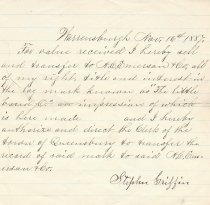 Warrensburgh Nov 16th 1887
For value received I hereby sell
and transfer to A.C. Emerson & Co. all
of my right, title and interest in
the log mark known as The little
hand &c. an impression of which
is here made and I hereby
authorize and direct the Clerk of the
town of Queensbury to transfer the
record of said mark to said A.C. Em-
erson & Co.
Stephen Griffin